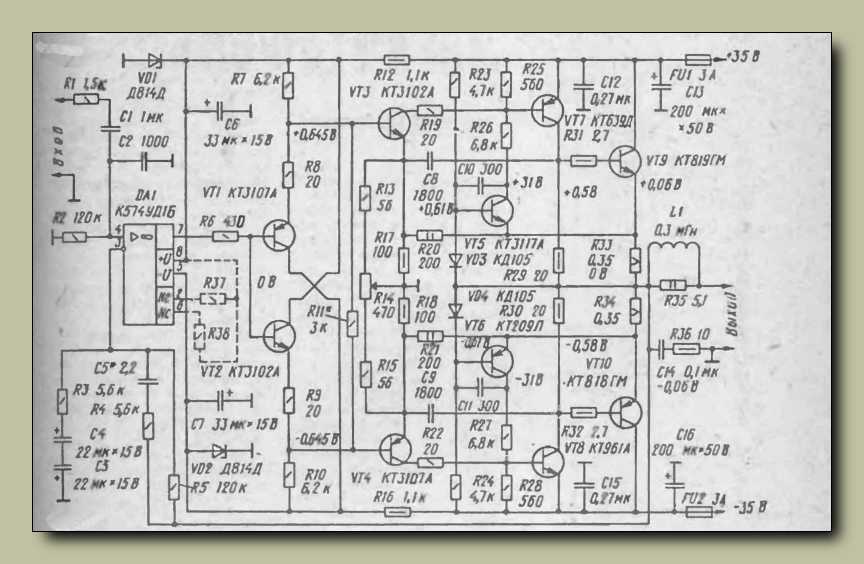 R1 1,5к
ВХОД
C1 1мк
C2 1000
VD1
Д814Д
R7 6,2к
C6
33 мк×15В
R8
20
VT1 КТ3107А
DA1
К574УД1Б
R2 120к
R6 430
▷∞
+U
-U
NC
NC
4
3
7
8
5
2
6
R37
R38
0В
VT2 КТ3102А
C5* 2,2
R3 5,6к
R4 5,6к
C4
22 мк×15В
C3
22 мк×15В
R5 120к
R9
20
C7 33 мк×15В
VD2 Д814Д
R10
6,2к
R12 1,1к
VT3 КТ3102А
+0,645В
R19
20
R13
56
C8
1800
R17
100
R20
200
R11*
3к
R14
470
R18
100
R21
200
R15
56
C9
1800
-0,645В
R22
20
VT4 КТ3107А
R16 1,1к
R23
4,7к
R25
560
R26
6,8к
C10 300
+31В
+0,61В
VT5 КТ3117А
VD3 КД105
R29 20
VD4 КД105
R30 20
VT6 КТ209Л
-0,61В
-31В
C11 300
R27
6,8к
R24
4,7к
R28
560
C12
0,27мк
VT7 КТ639Д
R31 2,7
FU1 3А
+35В
C13
200 мк×
×50В
VT9 КТ819ГМ
+0,58
+0,06В
L1
0,3 мГн
R33
0,35
0В
R34
0,35
R35 5,1
ВЫХОД
R36 10
C14 0,1мк
-0,06В
-0,58В
VT10
КТ818ГМ
R32 2,7
VT8 КТ961А
C16
200 мк×50В
C15
0,27мк
FU2 3А
-35В